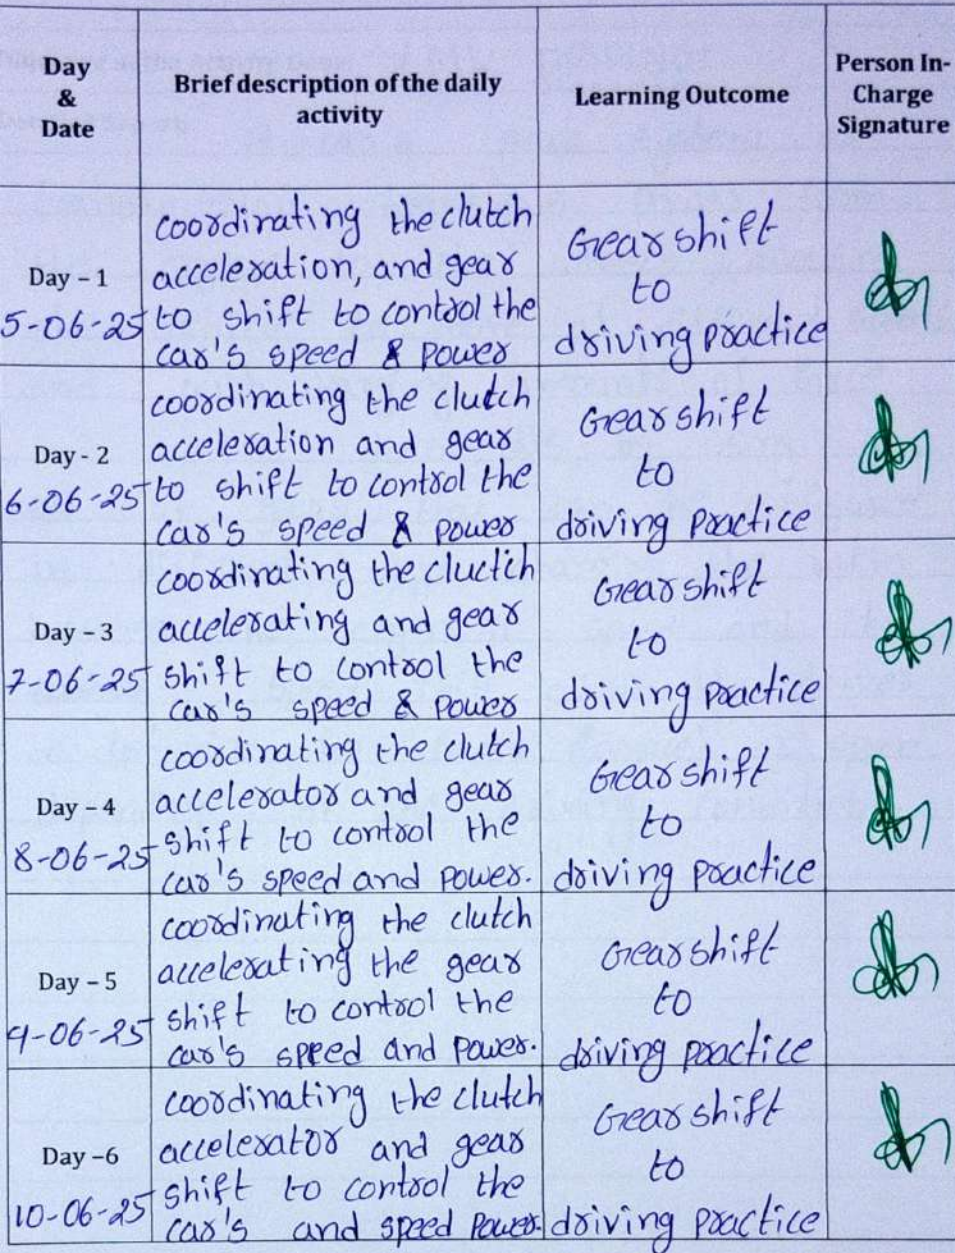 Day
&
Date
Brief description of the daily
activity
Learning Outcome
Person In-
Charge
Signature
Day – 1
5-06-25
coordinating the clutch
acceleration, and gear
to shift to control the
car's speed & power
Gear shift
to
driving practice
Day - 2
6-06-25
coordinating the clutch
acceleration and gear
to shift to control the
car's speed & power
Gear shift
to
driving practice
Day – 3
7-06-25
coordinating the cluctch
accelerating and gear
shift to control the
car's speed & power
Gear shift
to
driving practice
Day – 4
8-06-25
coordinating the clutch
accelerator and gear
shift to control the
car's speed and power.
Gear shift
to
driving practice
Day – 5
9-06-25
coordinating the clutch
accelerating the gear
shift to control the
car's speed and power.
Gear shift
to
driving practice
Day –6
10-06-25
coordinating the clutch
accelerator and gear
shift to control the
car's and speed power.
Gear shift
to
driving practice